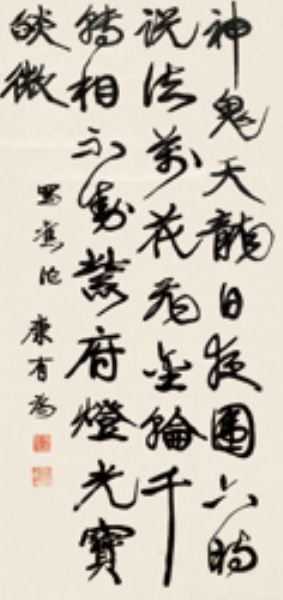 神鬼天龍日夜圍六時
說法萬花飛金輪千
轉相不動府燈光寶
燄微
康有為